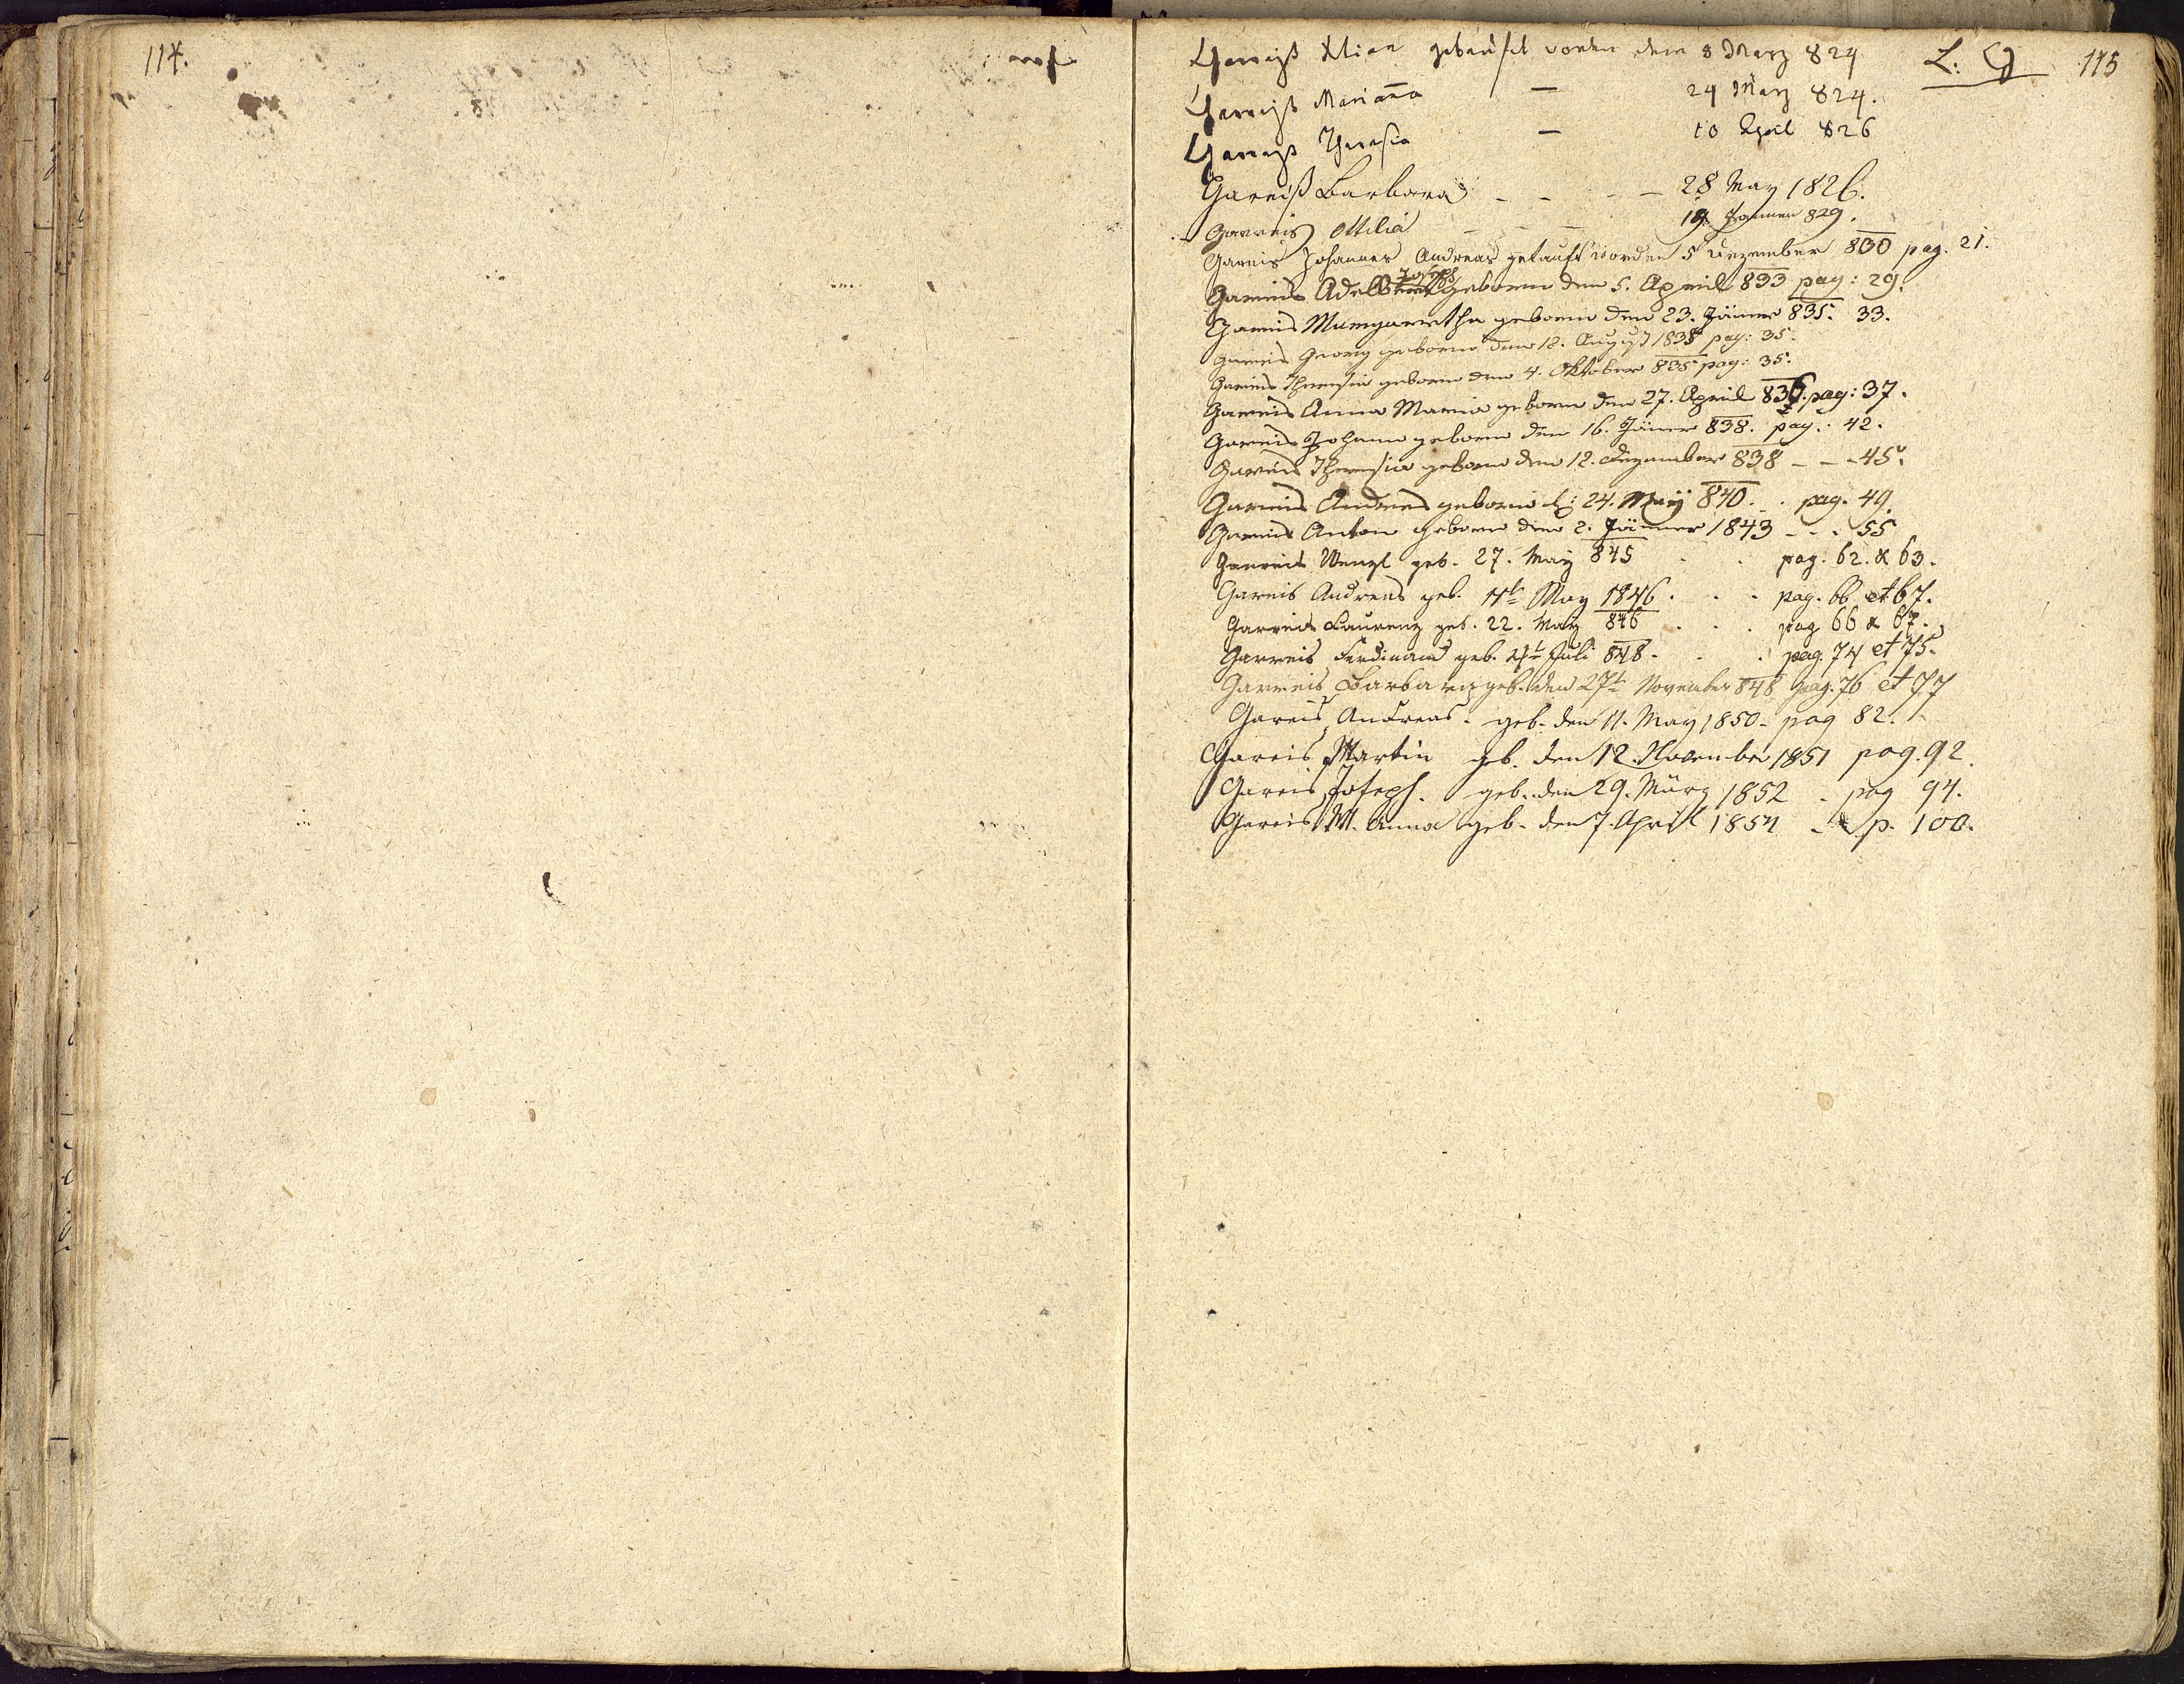 114.
L: G 115
Gareiß getauft worden dem 8 Marz 824
Gareiß Marianna — 24 Marz 824.
Gareiß Theresia — 10 April 826
Gareiß Barbara - - - — 28 May 1826.
Garreis Ottilia - - - Jannuar 829.
Gareis Johannes Andreas getauft worden 5 Dezember 830 pag. 21.
Gareis Joseph geboren den 5. April 833 pag: 29.
Gareis Margaretha geboren den 23. Jäner 835. 33.
Gareis Georg geboren den 18. August 1835 pag: 35.
Gareis Theresia geboren den 4. Oktober 835 pag: 35.
Gareis Anna Maria geboren den 27. April 836. pag: 37.
Gareis Johann geboren den 16. Jäner 838. pag: 42.
Gareis Theresia geboren den 12. Dezember 838 - - - 45.
Gareis Andreas geboren d: 24. May 840. . pag. 49.
Gareis Anton geboren den 2. Jänner 1843 - - - 55
Garreis Wenzl geb. 27. May 845 . . pag. 62. & 63.
Gareis Andreas geb. May 1846 . . . pag. 66 et 67.
Garreis Laurenz geb. 22. May 846 . . . pag 66 & 67.
Garreis Ferdinand geb. Juli 848. . . pag. 74 et 75.
Garreis Barbara geb. den 27t November 848 pag. 76 et 77
Gareis Andreas. geb. den 11. May 1850 - pag 82.
Gareis Martin geb. den 12. November 1851 pag. 92.
Gareis Joseph. geb. den 29. März 1852 . pag 94.
Gareis M. Anna geb. den 7. April 1854 - p. 100.